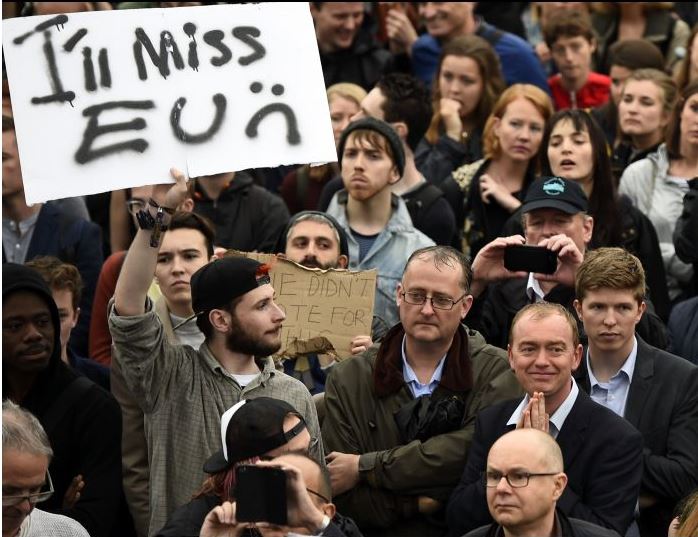 I'll Miss
EU :(
E DIDN'T
TE FOR